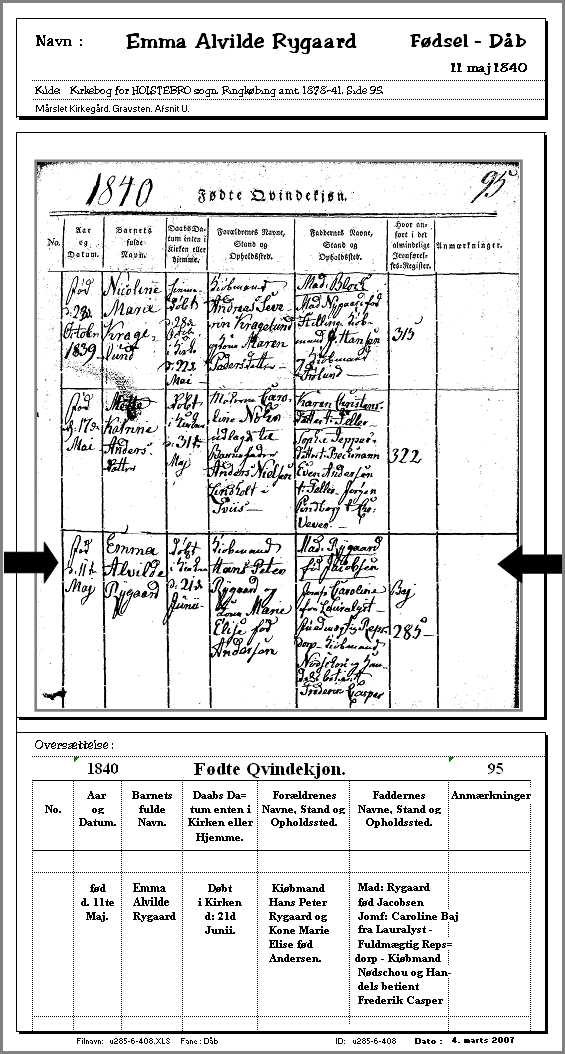 Navn : Emma Alvilde Rygaard Fødsel - Dåb
11 maj 1840
Kilde: Kirkebog for HOLSTEBRO sogn. Ringkøbing amt. 1878-41. Side 95.
Mårslet Kirkegård. Gravsten. Afsnit U.
1840 Fødte Qvindekjøn. 95
No.
Aar
og
Datum.
Barnets
fulde
Navn.
Daabs Da=
tum enten i
Kirken eller
Hjemme.
Forældrenes Navne,
Stand og
Opholdssted.
Faddernes Navne,
Stand og
Opholdssted.
Hvor an-
ført i det
almindelige
Jevnførel-
ses-Register.
Anmærkninger.
fød
d. 28de
Octobr
1839
Nicoline
Marie
Krage-
lund
d. 22d
Mai
Kiøbmand
Andreas Seve-
rin Kragelund
og Kone Maren
Pedersdatter
Mad. Block
Mad Rygaard fød
315
fød
d. 17de
Mai
Mette
Katrine
Anders-
datter
Døbt
i Kirken
d. 31te
Maj
Anders Nielsen
Lindholt i
Karen Christens-
322
fød
d. 11te
Maj
Emma
Alvilde
Rygaard
Døbt
i Kirken
d. 21d
Junii
Kiøbmand
Hans Peter
Rygaard og
Kone Marie
Elise fød
Andersen
Mad. Rygaard
fød Jacobsen
Jomf. Caroline Baj
fra Lauralyst -
Fuldmægtig Reps-
dorp - Kiøbmand
Nødschou og Han-
dels betient
Frederik Casper
285
Oversættelse :
1840 Fødte Qvindekjøn. 95
No.
Aar
og
Datum.
Barnets
fulde
Navn.
Daabs Da=
tum enten i
Kirken eller
Hjemme.
Forældrenes
Navne, Stand og
Opholdssted.
Faddernes
Navne, Stand og
Opholdssted.
Anmærkninger
fød
d. 11te
Maj.
Emma
Alvilde
Rygaard
Døbt
i Kirken
d: 21d
Junii.
Kiøbmand
Hans Peter
Rygaard og
Kone Marie
Elise fød
Andersen.
Mad: Rygaard
fød Jacobsen
Jomf: Caroline Baj
fra Lauralyst -
Fuldmægtig Reps=
dorp - Kiøbmand
Nødschou og Han-
dels betient
Frederik Casper
Filnavn: u285-6-408.XLS Fane : Dåb ID: u285-6-408 Dato : 4. marts 2007